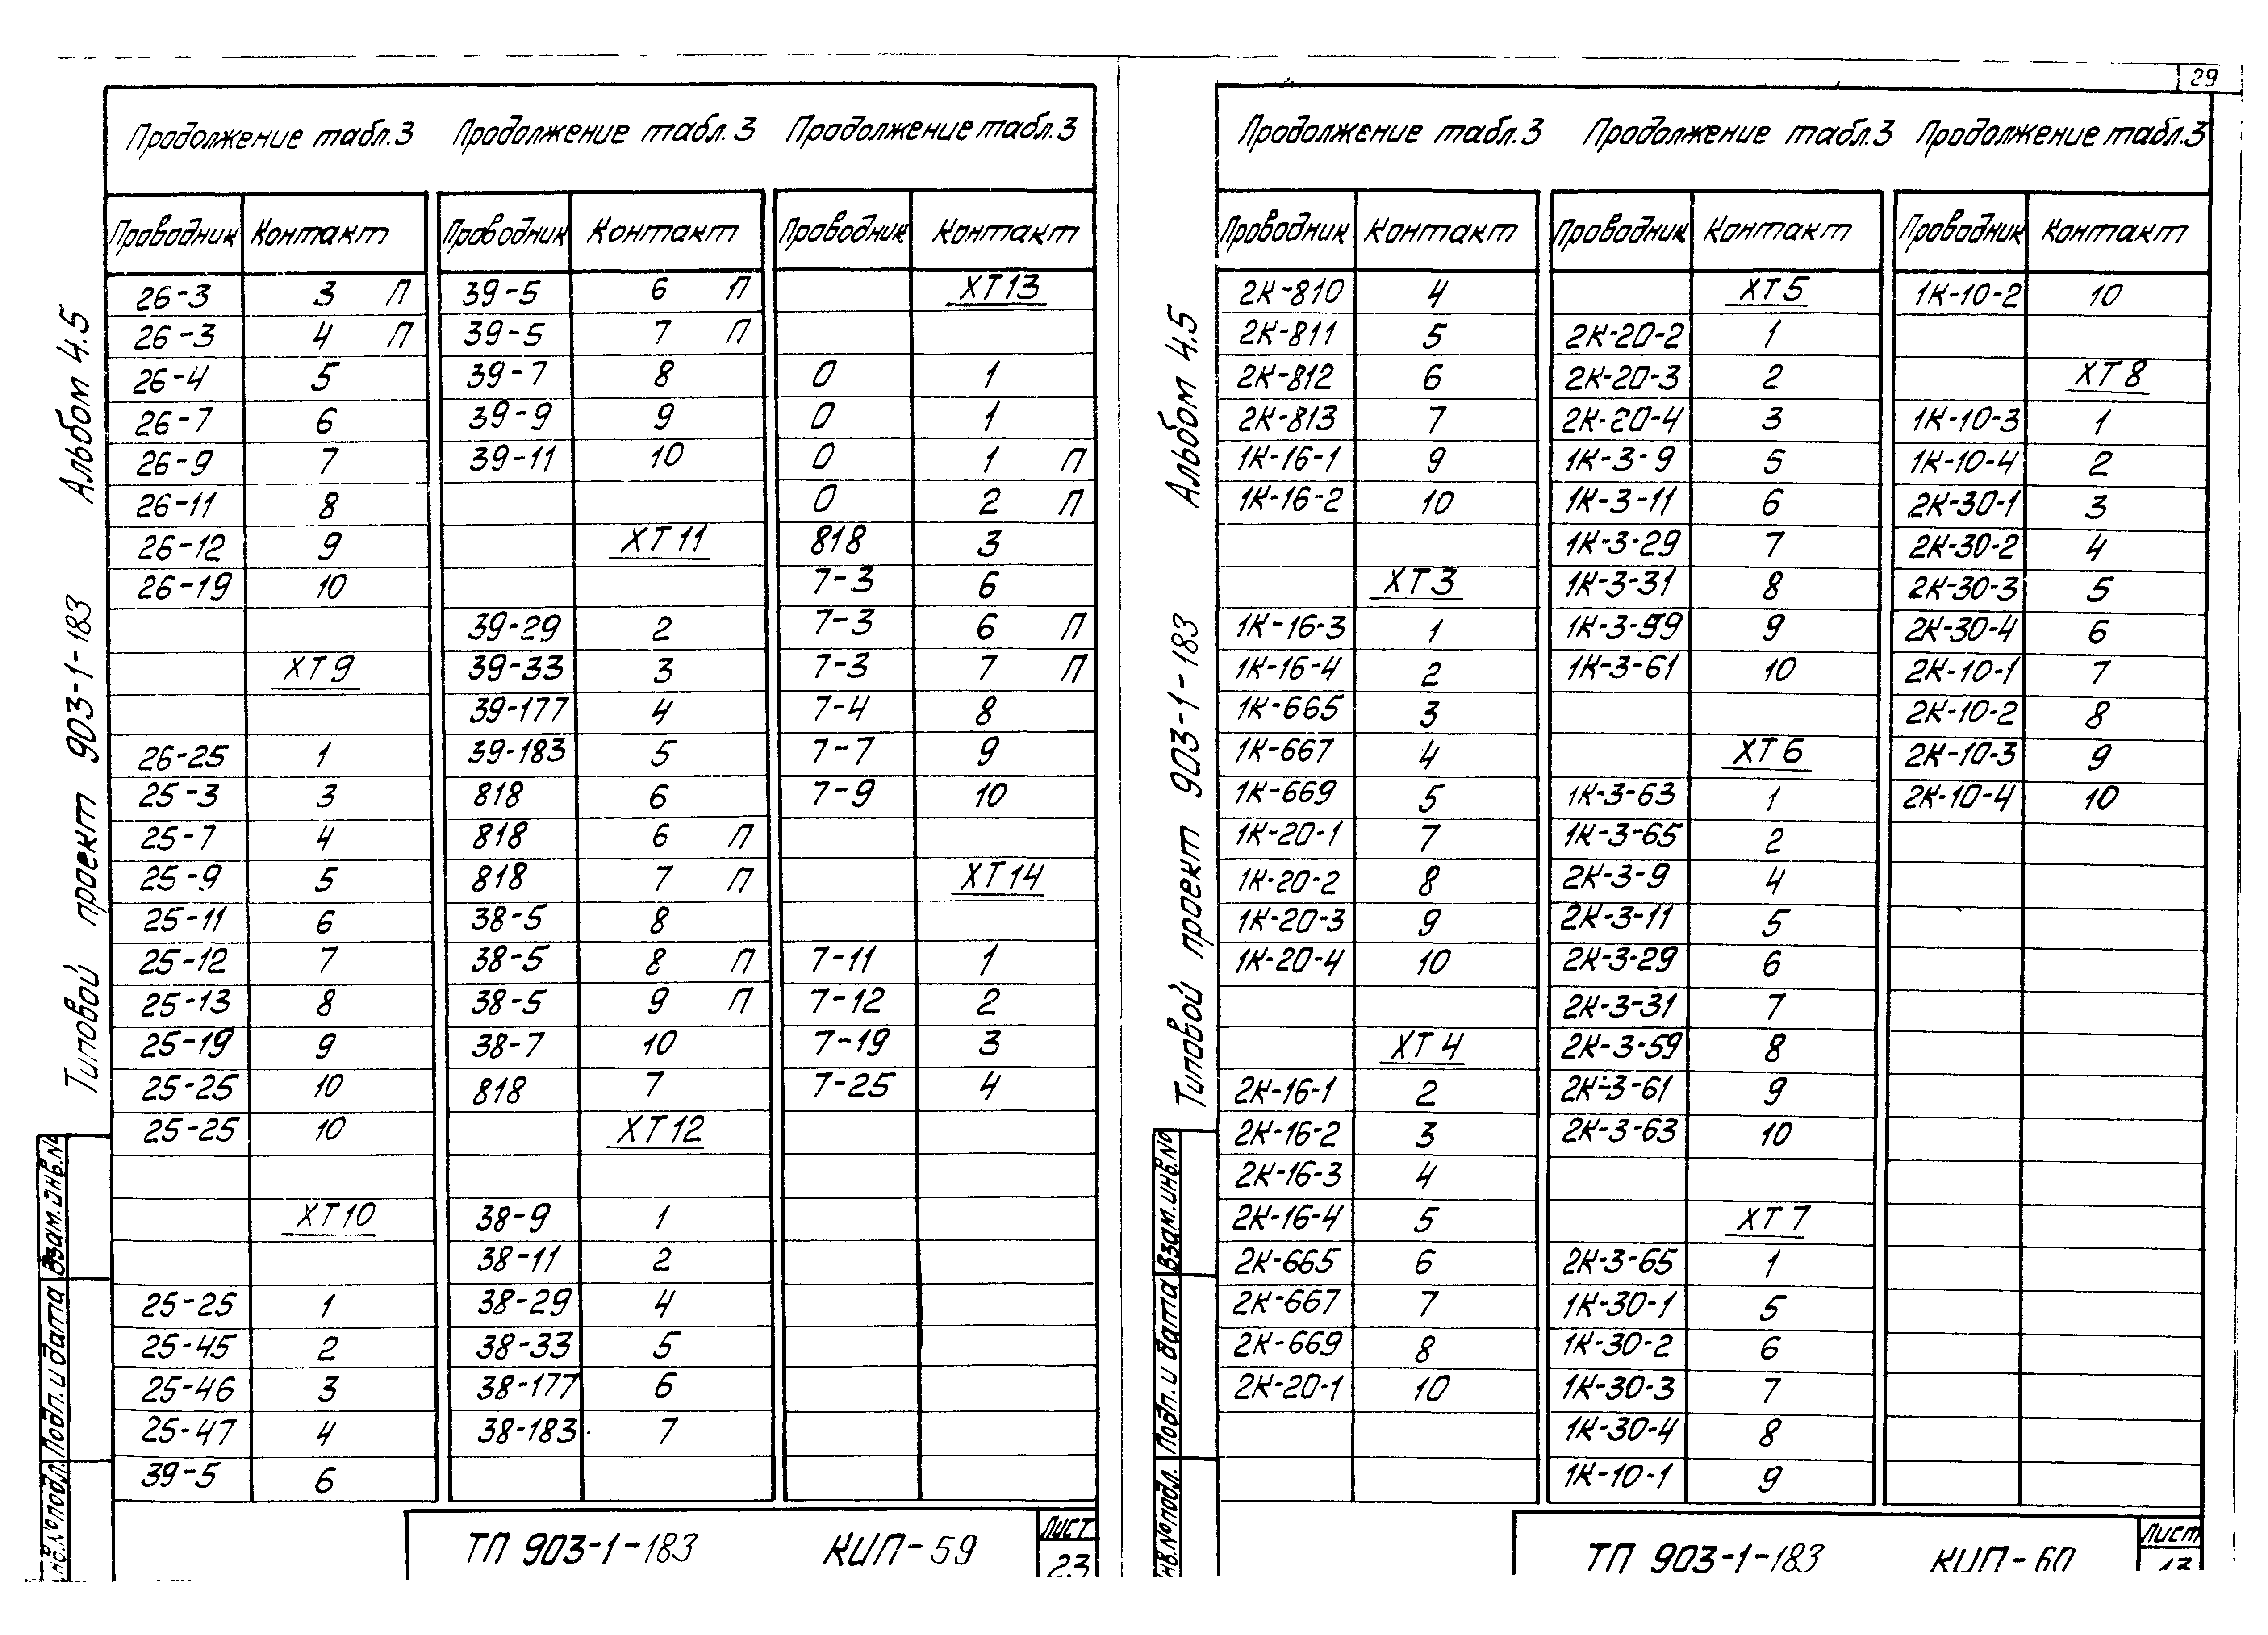 29
Альбом 4.5
Типовой проект 903-1-183
Продолжение табл.3
Проводник Контакт
26-3 3 П
26-3 4 П
26-4 5
26-7 6
26-9 7
26-11 8
26-12 9
26-19 10
ХТ9
26-25 1
25-3 3
25-7 4
25-9 5
25-11 6
25-12 7
25-13 8
25-19 9
25-25 10
25-25 10
ХТ10
25-25 1
25-45 2
25-46 3
25-47 4
39-5 6
Продолжение табл.3
Проводник Контакт
39-5 6 П
39-5 7 П
39-7 8
39-9 9
39-11 10
ХТ11
39-29 2
39-33 3
39-177 4
39-183 5
818 6
818 6 П
818 7 П
38-5 8
38-5 8 П
38-5 9 П
38-7 10
818 7
ХТ12
38-9 1
38-11 2
38-29 4
38-33 5
38-177 6
38-183 7
Продолжение табл.3
Проводник Контакт
ХТ13
0 1
0 1
0 1 П
0 2 П
818 3
7-3 6
7-3 6 П
7-3 7 П
7-4 8
7-7 9
7-9 10
ХТ14
7-11 1
7-12 2
7-19 3
7-25 4
Взам.инв.№
Подп. и дата
Инв.№подл.
ТП 903-1-183 КИП-59
Лист
23
Альбом 4.5
Типовой проект 903-1-183
Продолжение табл.3
Проводник Контакт
2К-810 4
2К-811 5
2К-812 6
2К-813 7
1К-16-1 9
1К-16-2 10
ХТ3
1К-16-3 1
1К-16-4 2
1К-665 3
1К-667 4
1К-669 5
1К-20-1 7
1К-20-2 8
1К-20-3 9
1К-20-4 10
ХТ4
2К-16-1 2
2К-16-2 3
2К-16-3 4
2К-16-4 5
2К-665 6
2К-667 7
2К-669 8
2К-20-1 10
Продолжение табл.3
Проводник Контакт
ХТ5
2К-20-2 1
2К-20-3 2
2К-20-4 3
1К-3-9 5
1К-3-11 6
1К-3-29 7
1К-3-31 8
1К-3-59 9
1К-3-61 10
ХТ6
1К-3-63 1
1К-3-65 2
2К-3-9 4
2К-3-11 5
2К-3-29 6
2К-3-31 7
2К-3-59 8
2К-3-61 9
2К-3-63 10
ХТ7
2К-3-65 1
1К-30-1 5
1К-30-2 6
1К-30-3 7
1К-30-4 8
1К-10-1 9
Продолжение табл.3
Проводник Контакт
1К-10-2 10
ХТ8
1К-10-3 1
1К-10-4 2
2К-30-1 3
2К-30-2 4
2К-30-3 5
2К-30-4 6
2К-10-1 7
2К-10-2 8
2К-10-3 9
2К-10-4 10
Взам.инв.№
Подп. и дата
Инв.№подл.
ТП 903-1-183 КИП-60
Лист